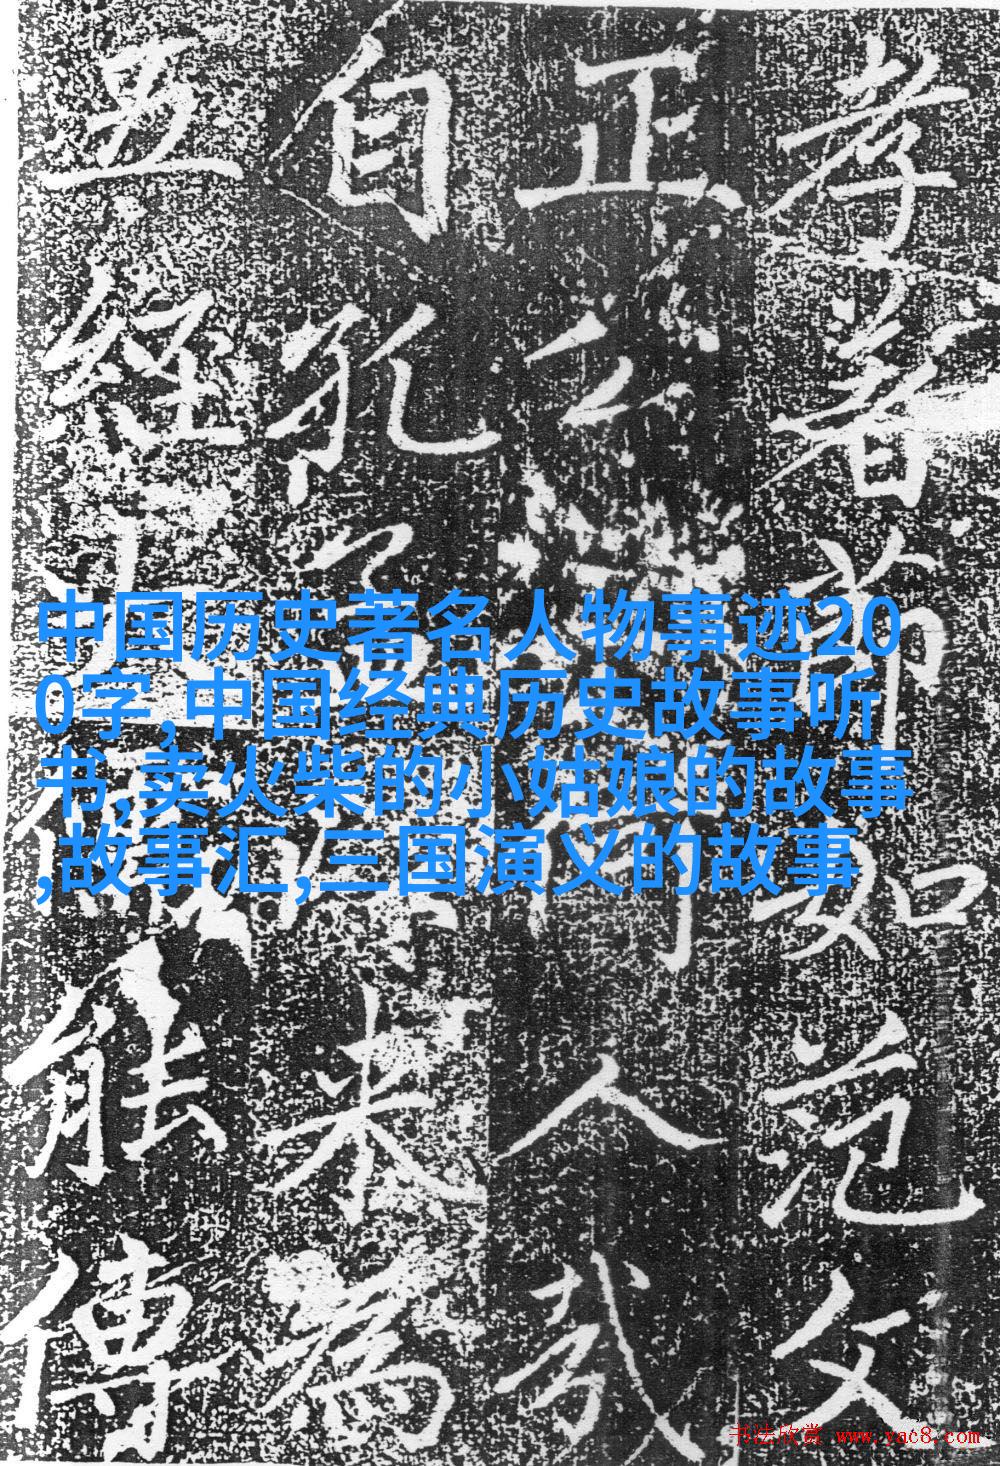 中国历史著名人物事迹20
0字,中国经典历史故事听
书,卖火柴的小姑娘的故事
,故事汇,三国演义的故事
孝著節如范文
正公何人哉
自孔子來為
五經能傳
书法欣赏 www.yac8.com